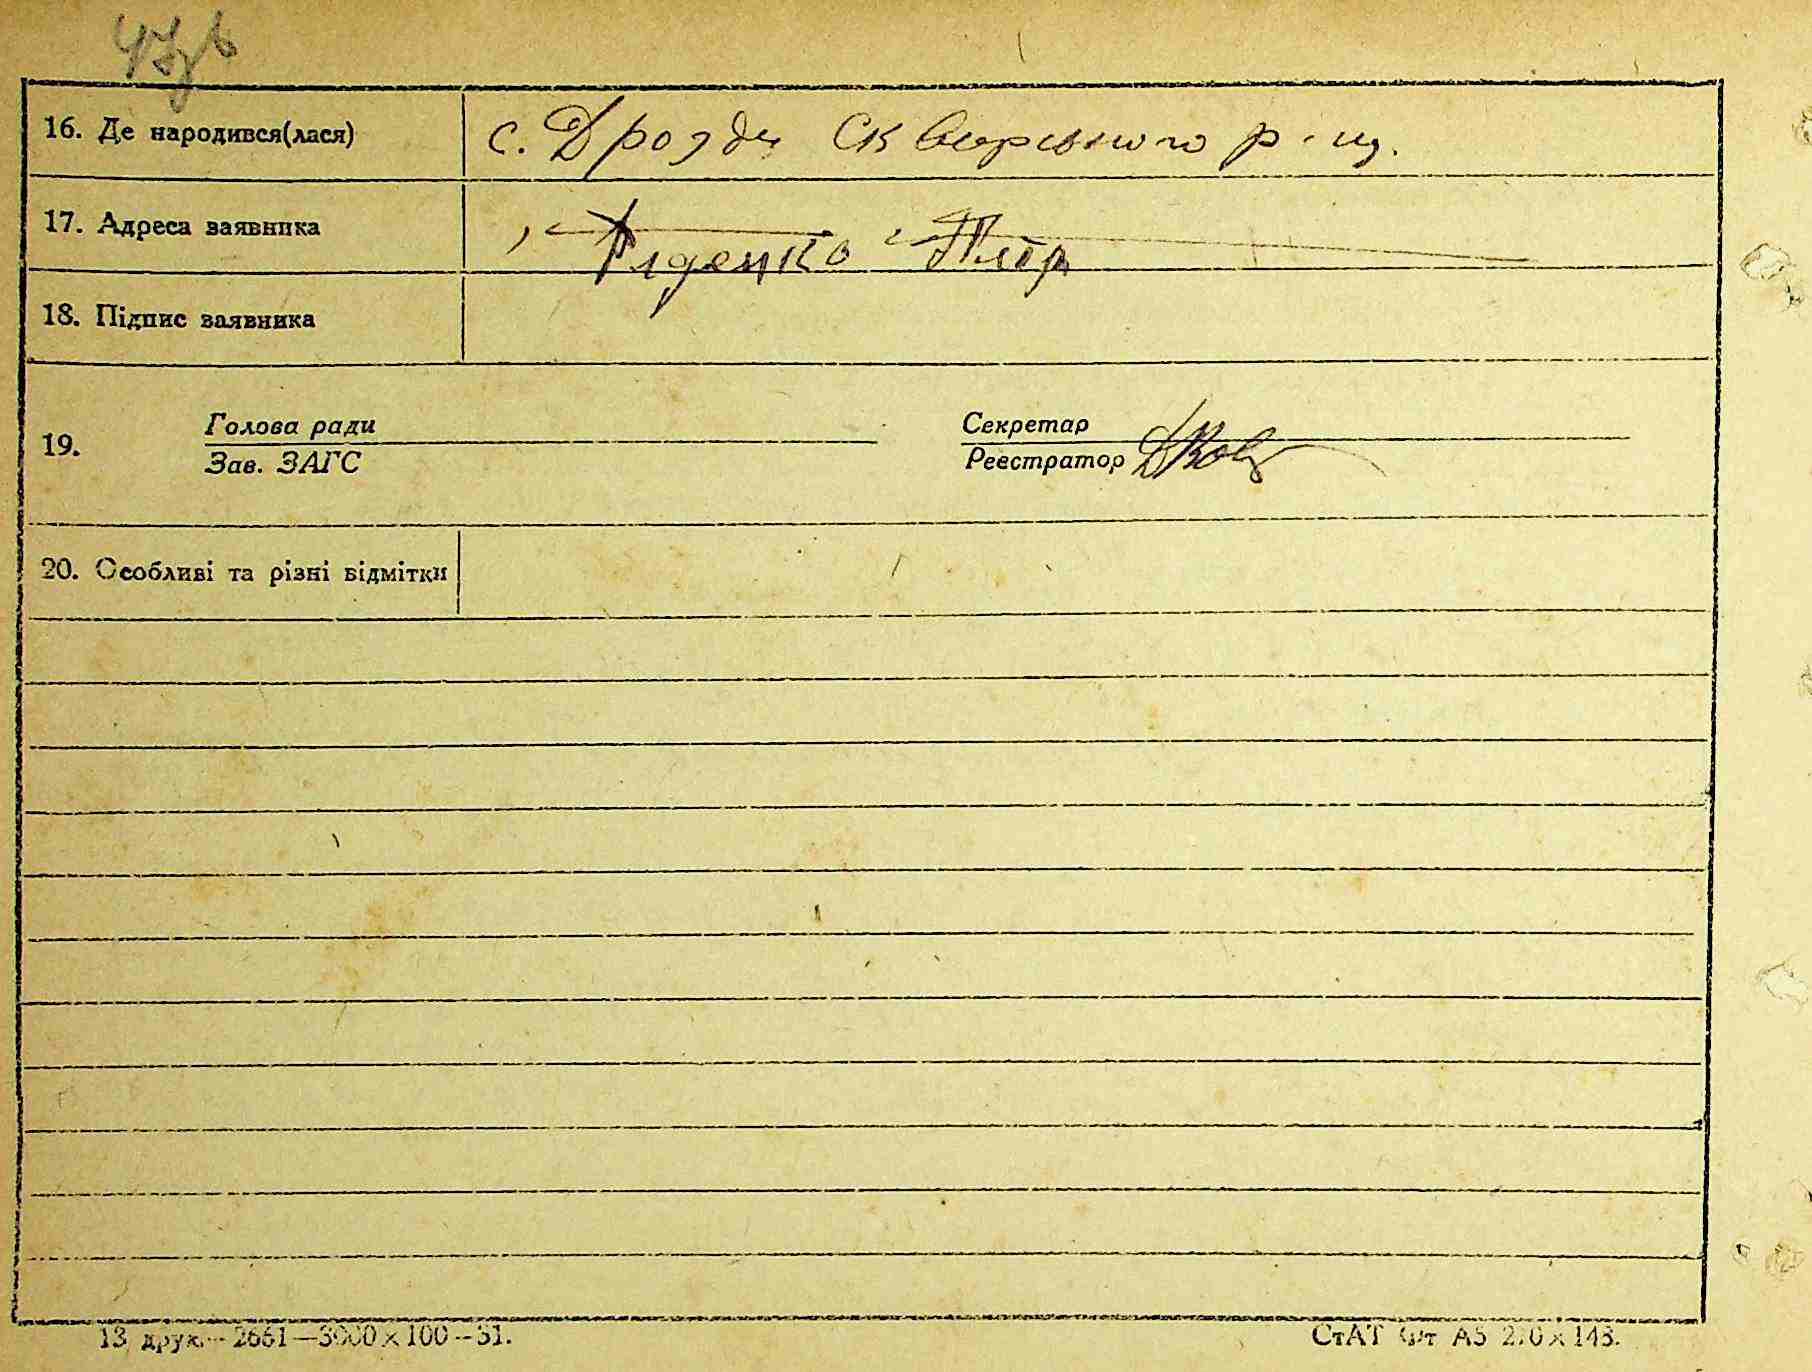 16. Де народився(лася) с. Дрозди Сквирського р-ну.
17. Адреса заявника
Діденко Петр
18. Підпис заявника
Голова ради Секретар
19.
Зав. ЗАГС Реєстратор
20. Особливі та різні відмітки
13 друк.—2661—3000×100—31. СтАТ Фт А5 210×148.